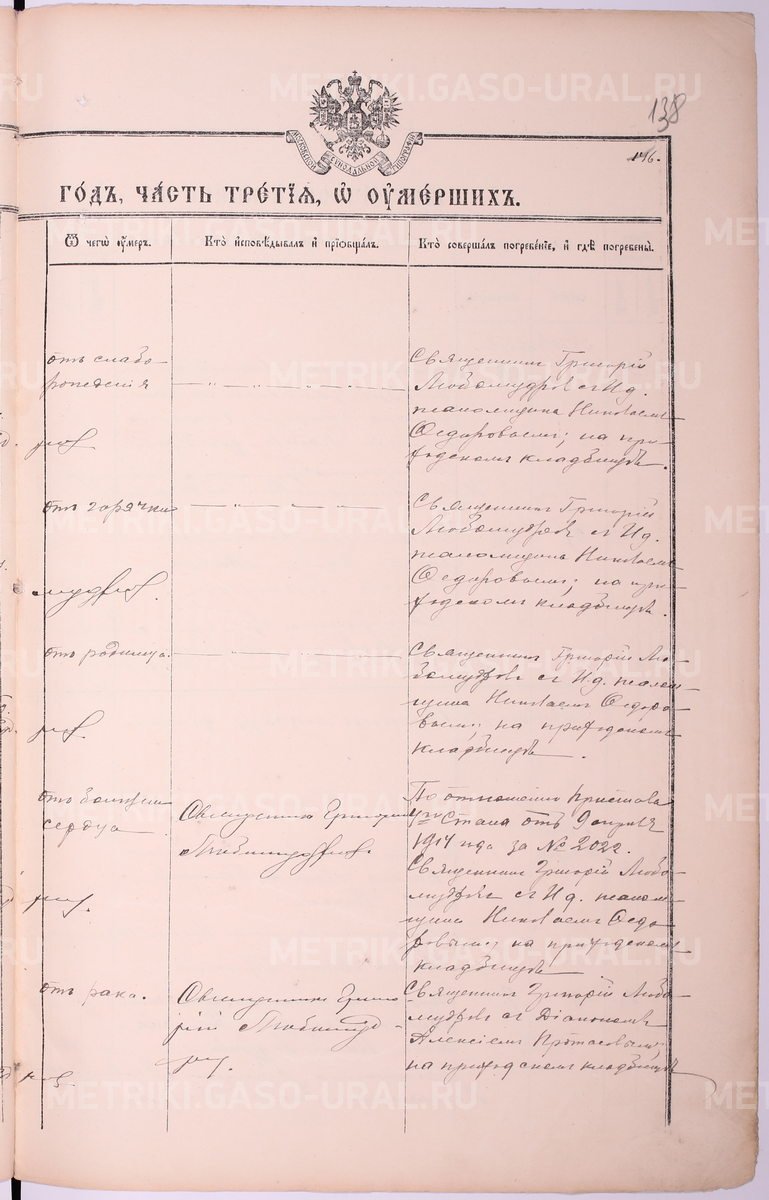 138
146.
МОСКОВСКОЙ СѴНОДАЛЬНОЙ ТИПОГРАФІИ
ГОДЪ, ЧАСТЬ ТРЕТІЯ, Ѡ ОУМЕРШИХЪ.
Ѿ чегѡ оумеръ.
Кто исповѣдывалъ и пріобщалъ.
Кто совершалъ погребеніе, и гдѣ погребены.
отъ слабо-
рожденія
Священникъ Григорій
Любомудровъ съ И. д.
псаломщика Николаемъ
Ѳедоровымъ; на при-
ходскомъ кладбищѣ.
отъ горячки
Священникъ Григорій
Любомудровъ съ И. д.
псаломщика Николаемъ
Ѳедоровымъ; на при-
ходскомъ кладбищѣ.
отъ родимца.
Священникъ Григорій Лю-
бомудровъ съ И. д. псалом-
щика Николаемъ Ѳедоро-
вымъ; на приходскомъ
кладбищѣ.
отъ болѣзни
сердца
Священникъ Григорій
Любомудровъ
По отношенію Пристава
Стана отъ 9 апрѣля
1914 года за № 2022.
Священникъ Григорій Любо-
мудровъ съ И. д. псалом-
щика Николаемъ Ѳедо-
ровымъ; на приходскомъ
кладбищѣ
отъ рака.
Священникъ Григо-
рій Любомуд-
Священникъ Григорій Любо-
мудровъ съ Діакономъ
Алексіемъ Протасовымъ;
на приходскомъ кладбищѣ
METRIKI.GASO-URAL.RU